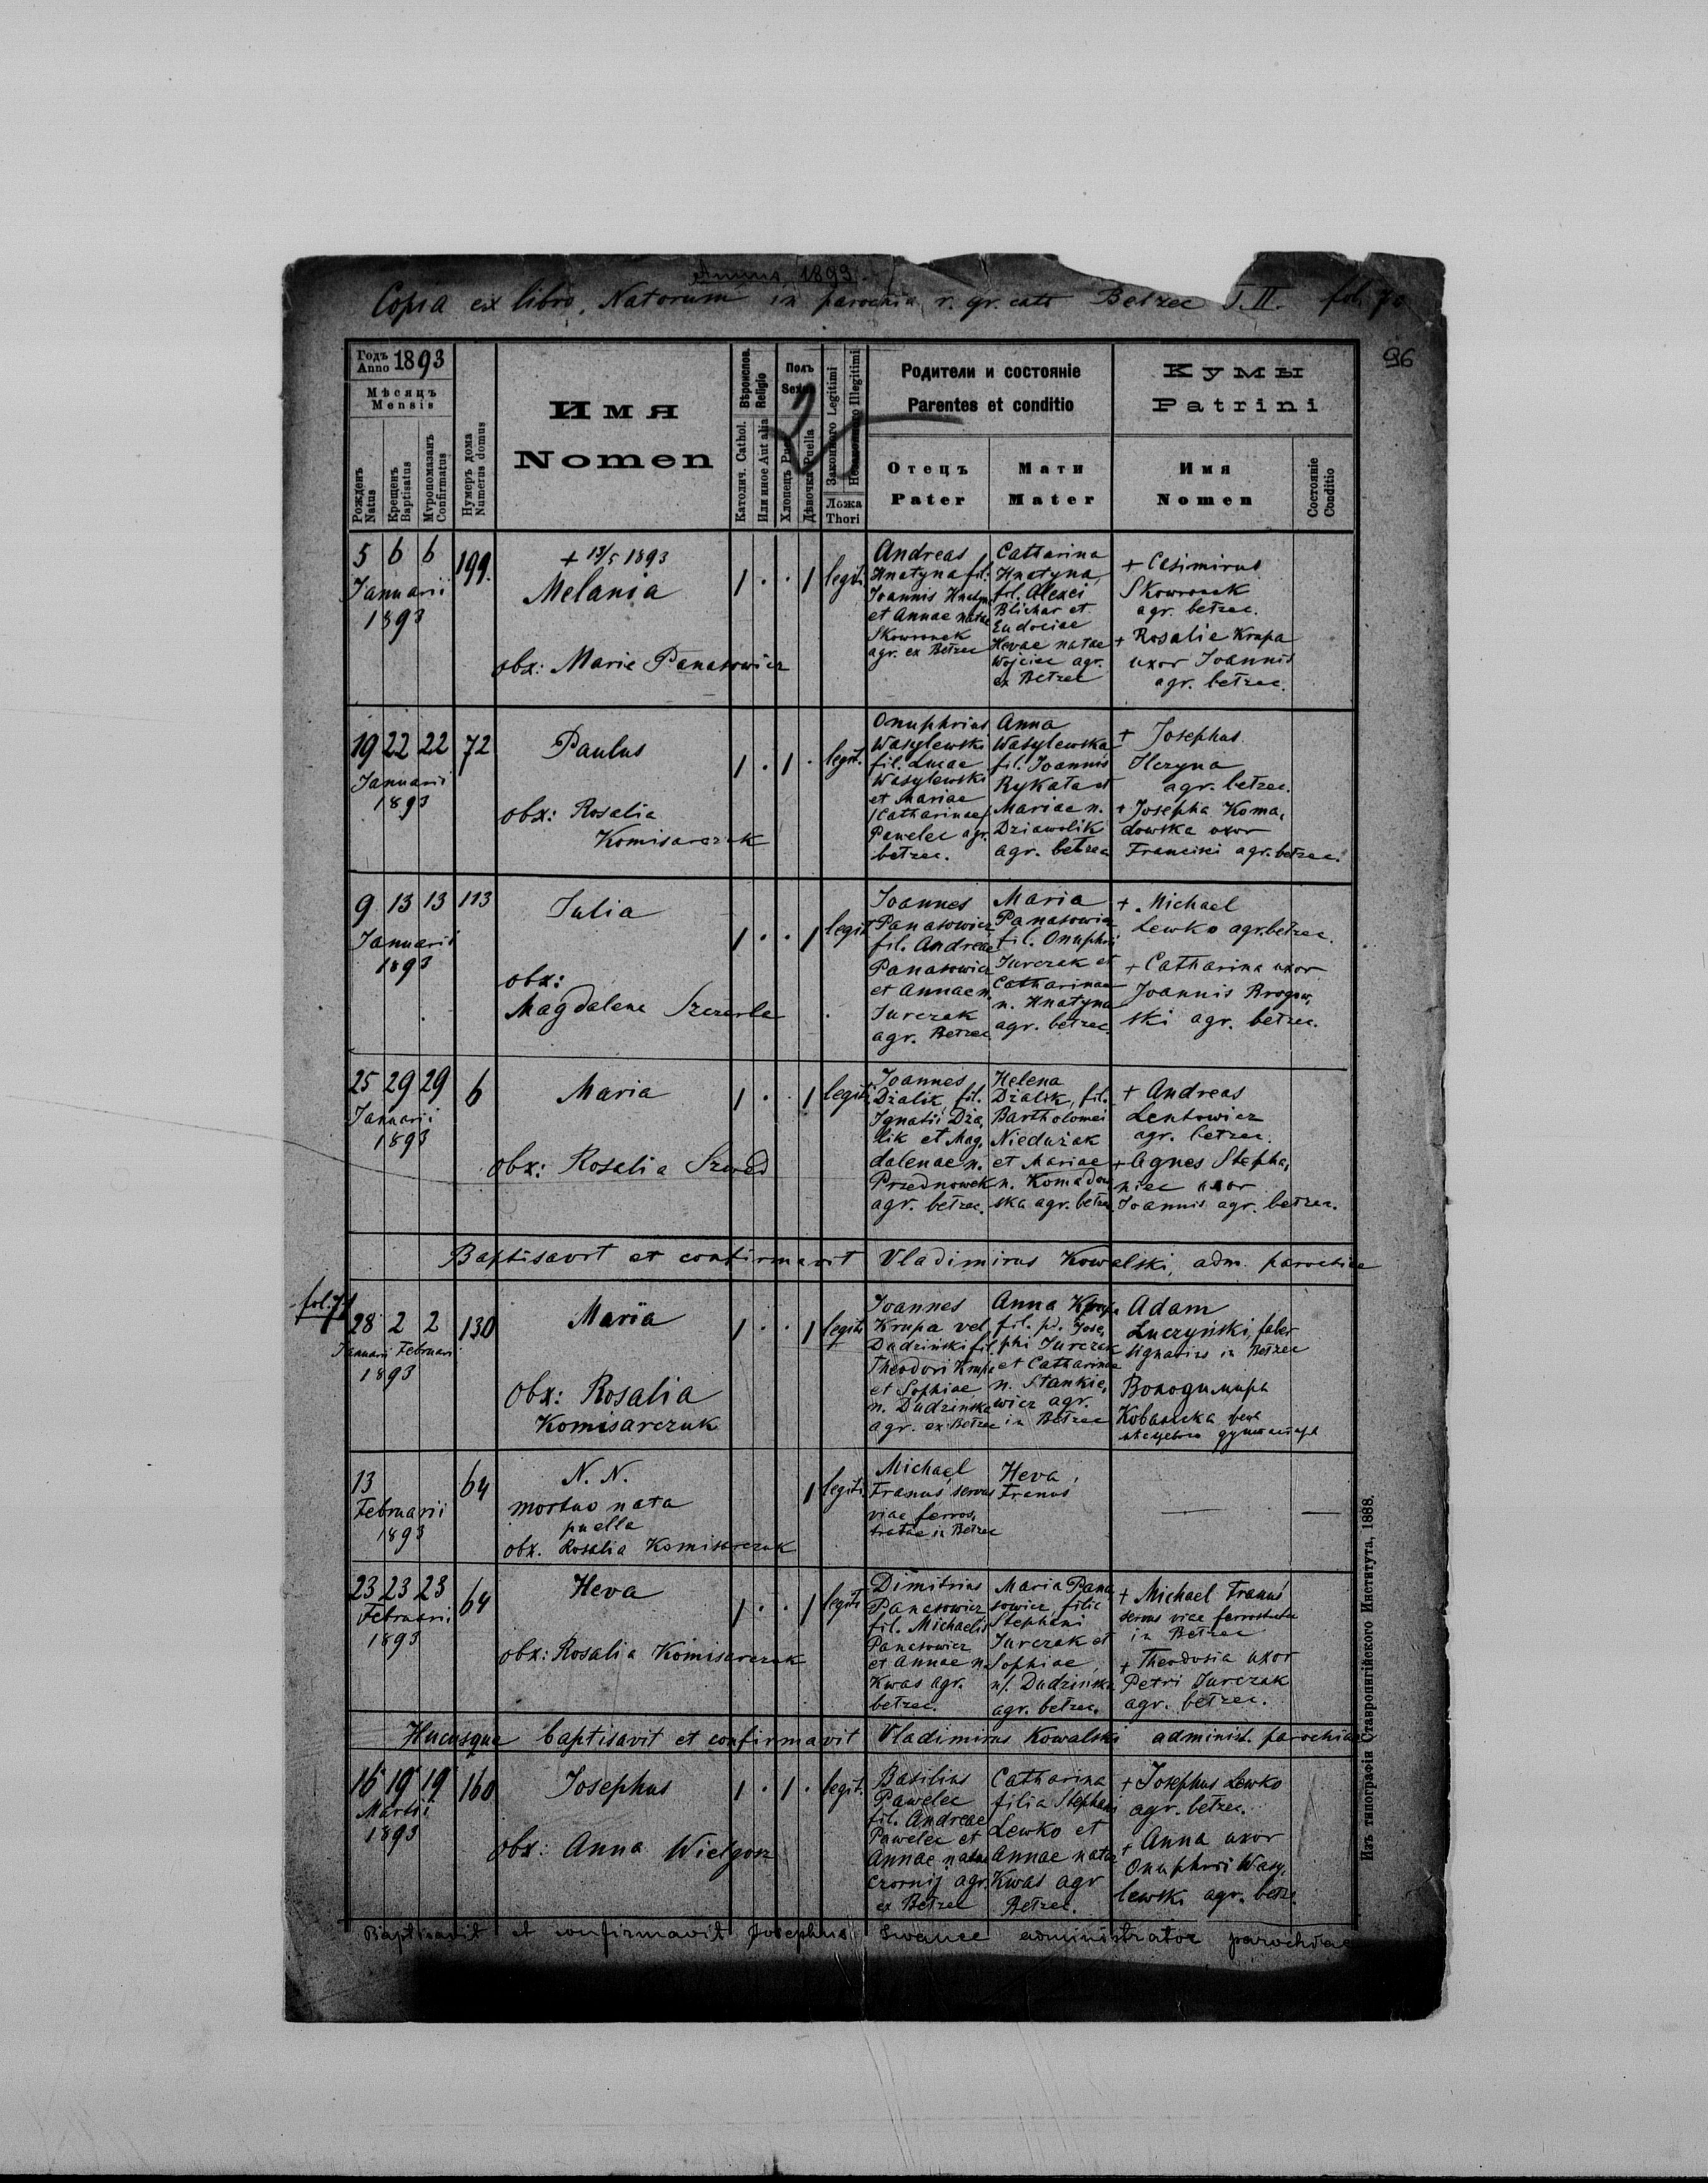 Annus 1893.
Copia ex libro Natorum in parochia r. gr. cath Bełzec T. II. fol. 70
96
Годъ Anno 1893
Мѣсяцъ
Mensis
Рожденъ Natus
Крещенъ Baptisatus
Мѵропомазанъ Confirmatus
Нумеръ дома Numerus domus
Имя
Nomen
Вѣроиспов. Religio
Католич. Cathol.
Или иное Aut alia
Полъ
Sexus
Хлопецъ Puer
Дѣвочка Puella
Законного Legitimi
Незаконного Illegitimi
Ложа
Thori
Родители и состоянiе
Parentes et conditio
Отецъ
Pater
Мати
Mater
Кумы
Patrini
Имя
Nomen
Состоянiе Conditio
5 6 6
Januarii
1893
199.
+ 13/5 1893
Melania
obx: Marie Panasowicz
1 . . 1 legit.
Andreas
Hnatyna fil.
Joannis Hnatyna
et Annae natae
Skowronek
agr. ex Bełzec
Catharina
Hnatyna,
fil. Alexei
Blichar et
Eudociae
Hevae natae
Wojciec agr.
ex Bełzec
+ Casimirus
Skowronek
agr. bełzec.
+ Rosalie Krupa
uxor Joannis
agr. bełzec.
19 22 22
Januarii
1893
72
Paulus
obx: Rosalia
Komisarczuk
1 . 1 . legit.
Onuphrius
Wasylewski
fil. Lucae
Wasylewski
et Mariae
/Catharinae/
Pawelec agr.
bełzec.
Anna
Wasylewska
fil. Joannis
Rykała et
Mariae n.
Dziawolik
agr. bełzec
+ Josephus
Hczyna
agr. bełzec.
+ Josepha Koma,
dowska uxor
Francisci agr. bełzec.
9 13 13
Januarii
1893
113
Julia
obx:
Magdalena Szczerba
1 . . 1 legit
Joannes
Panasowicz
fil. Andreae
Panasowicz
et Annae n.
Jurczak
agr. Bełzec
Maria
Panasowicz
fil. Onuphri
Jurczak et
Catharinae
n. Hnatyna
agr. bełzec.
+ Michael
Lewko agr. bełzec.
+ Catharina uxor
Joannis Brogow,
ski agr. bełzec.
25 29 29
Januarii
1893
6
Maria
obx: Rosalia Szwed
1 . . 1 legiti
Joannes
Dżalik, fil.
Ignatii Dża,
lik et Mag,
dalenae n.
Przednowek
agr. bełzec.
Helena
Dżalik, fil.
Bartholomei
Niedużak
et Mariae
n. Komadow
ska agr. bełzec.
+ Andreas
Lentowicz
agr. bełzec.
+ Agnes Stepha,
niec uxor
Joannis agr. bełzec.
Baptisavit et confirmavit Vladimirus Kowalski, adm. parochiae
fol. 71
28 2 2
Januarii Februari
1893
130
Maria
Obx: Rosalia
Komisarczuk
1 . . 1 legiti
Joannes
Krupa vel
Dudziński fil.
Theodori Krupa
et Sophiae
n. Dudzińska
agr. ex Bełzec
Anna Krupa
fil. p. Jose,
phi Jurczak
et Catharinae
n. Stankie,
wicz agr.
in Bełzec
Adam
Łuczyński, faber
lignarius in Bełzec
Володимира
Ковальска жена
мѣсцевого душпастыря
13
Februarii
1893
64
N. N.
mortuo nata
puella
obx. Rosalia Komisarczuk
1 legiti.
Michael
Franus servus
viae ferros,
tratae in Bełzec
Heva
Franus
— —
23 23 23
Februarii
1893
64
Heva
obx: Rosalia Komisarczuk
1 . . 1 legiti
Dimitrius
Panasowicz
fil. Michaelis
Panasowicz
et Annae n.
Kwas agr.
bełzec.
Maria Pana
sowicz filia
Stephani
Jurczak et
Sophiae
n/. Dudzińska
agr. bełzec.
+ Michael Franus
servus viae ferrostratae
in Bełzec
+ Theodosia uxor
Petri Jurczak
agr. bełzec.
Hucusque baptisavit et confirmavit Vladimirus Kowalski administ. parochiae
16 19 19
Martii
1893
160
Josephus
obx: Anna Wielgosz
1 . 1 . legit.
Basilius
Pawelec
fil. Andreae
Pawelec et
Annae natae
Czornij agr.
ex Bełzec
Catharina
filia Stephani
Lewko et
Annae natae
Kwas agr
Bełzec.
+ Josephus Lewko
agr. bełzec.
+ Anna uxor
Onuphrii Wasy,
lewski agr. bełz.
Baptisavit et confirmavit Josephus Iwanec administrator parochiae
Изъ типографiи Ставропигiйского Института, 1888.